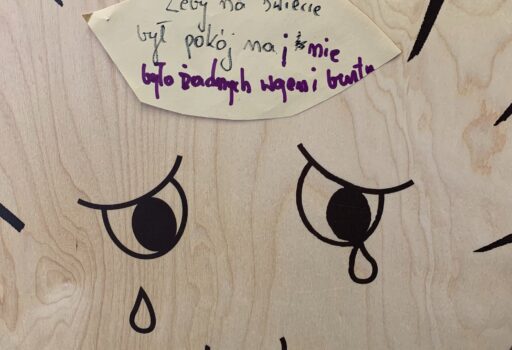 Żeby na świecie
był pokój na i nie
było żadnych wojen i buntu